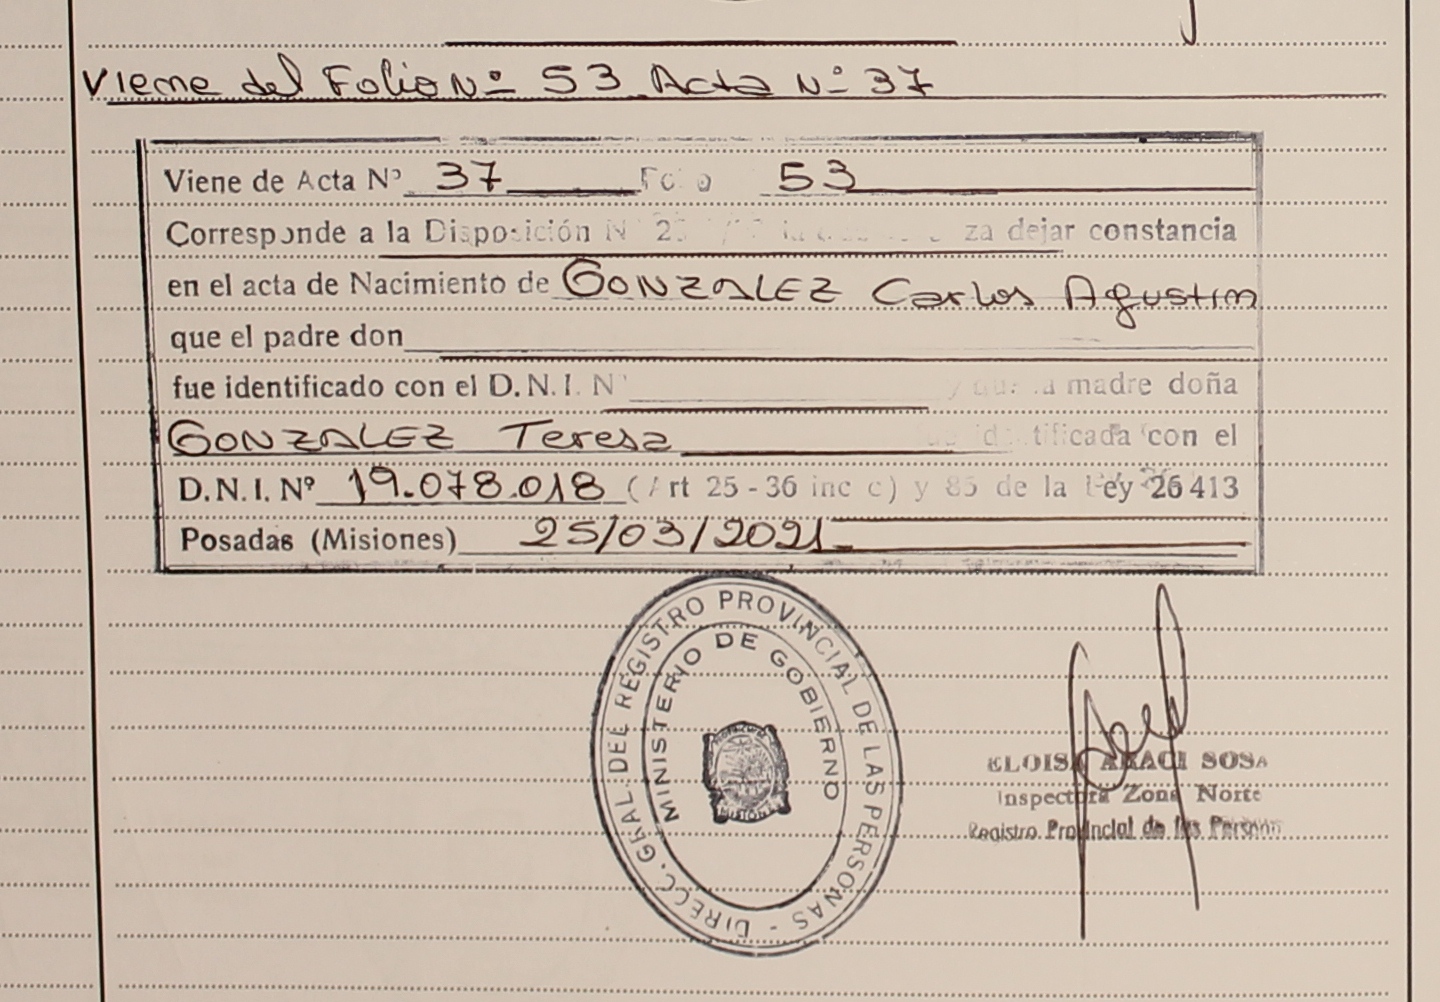 Viene del Folio Nº 53 Acta Nº 37
Viene de Acta Nº 37 Folio 53
Corresponde a la Disposición N 2 za dejar constancia
en el acta de Nacimiento de GONZALEZ Carlos Agustin
que el padre don
fue identificado con el D.N.I. Nº y que la madre doña
GONZALEZ Teresa identificada con el
D.N.I. Nº 19.078.018 (Art 25 - 36 inc c) y 85 de la Ley 26413
Posadas (Misiones) 25/03/2021
DIRECC. GRAL. DEL REGISTRO PROVINCIAL DE LAS PERSONAS -
MINISTERIO DE GOBIERNO
MISIONES
ELOISA ARACI SOSA
Inspectora Zona Norte
Registro Provincial de las Personas